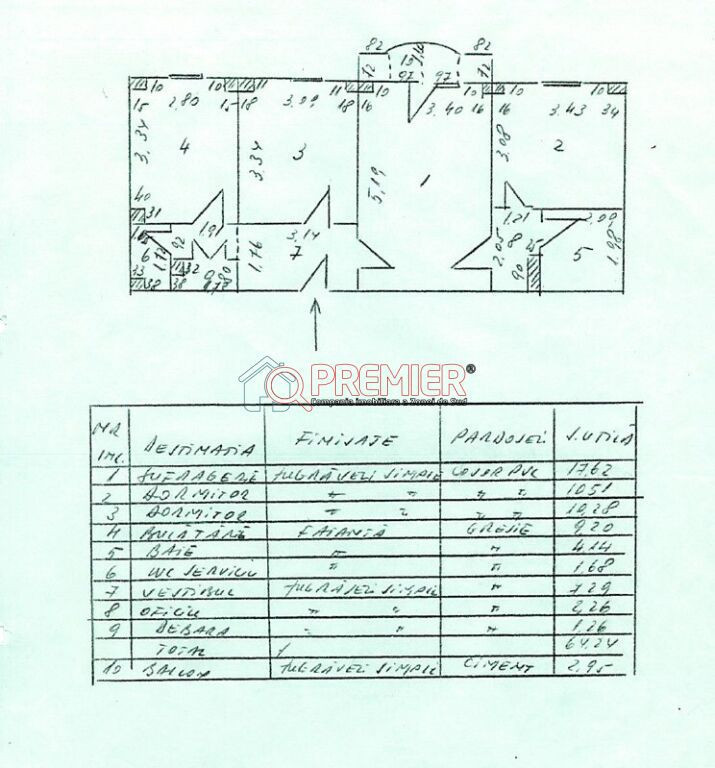 82 82
12 12
19
97 97
10 10 11 11 10 10 16 16 10 10
15 2,80 15 18 3,09 18 16 3,40 16 16 3,43 34
3,34 3,34 5,19 3,08
4 3 1 2
40
31
1,91 3,14 1,21 2,09
6 1,12 92 1,76 7 2,05 8 25 5 1,98
33 38 32 38 9 80 90
PREMIER®
Compania imobiliara a Zonei de Sud
NR DESTINATIA FINISATE PARDOSELI S.UTILĂ
INC.
1 SUFRAGERE ZUGRĂVELI SIMPLE COVOR PVC 17,62
2 DORMITOR " " " " 10,51
3 DORMITOR " " " " 10,28
4 BUCĂTĂRE FAIANTĂ GRESIE 9,20
5 BAIE " " 4,14
6 WC SERVICIU " " 1,68
7 VESTIBUL ZUGRĂVELI SIMPLE " 7,29
8 OFICIU " " " 2,26
9 DEBARA " " " 1,26
TOTAL 64,24
10 BALCON ZUGRĂVELI SIMPLE CIMENT 2,95